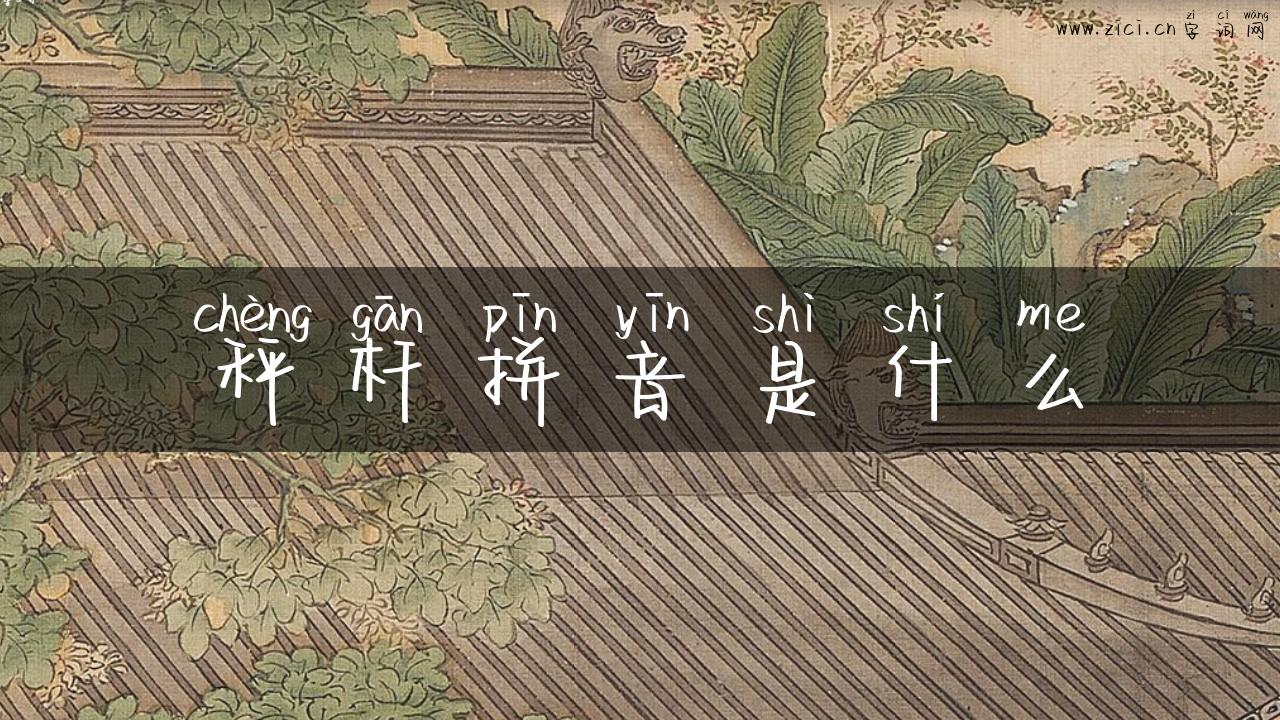 zì cí wǎng
www.zici.cn 字词网
chèng gān pīn yīn shì shí me
秤杆拼音是什么